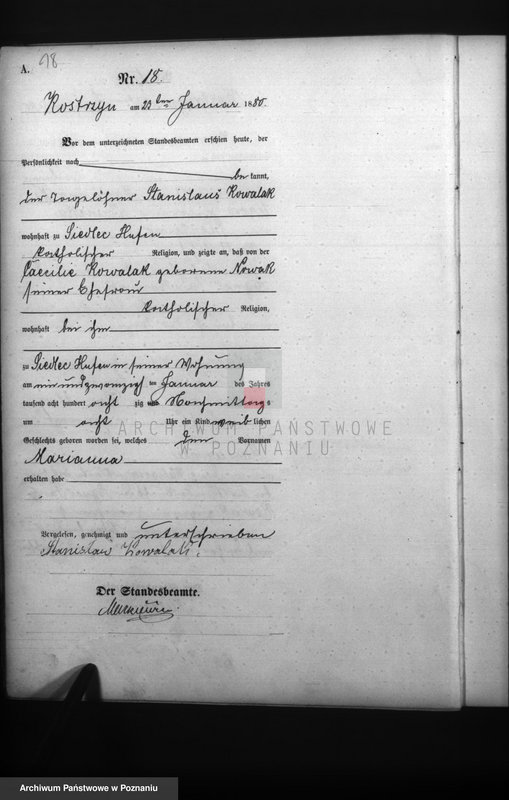 98
A.
Nr. 18.
Kostrzyn am 23ten Januar 1880.
Vor dem unterzeichneten Standesbeamten erschien heute, der
Persönlichkeit nach
be kannt,
der Tagelöhner Stanislaus Kowalak
wohnhaft zu Siedlec Hufen
katholischer Religion, und zeigte an, daß von der
Caecilie Kowalak geborene Nowak
seiner Ehefrau
katholischer Religion,
wohnhaft bei ihm
zu Siedlec Hufen in seiner Wohnung
am ein und zwanzigsten Januar des Jahres
tausend acht hundert acht zig und Nachmittags
um acht Uhr ein Kind weib lichen
Geschlechts geboren worden sei, welches den Vornamen
Marianna
erhalten habe
Vorgelesen, genehmigt und unterschrieben
Stanislaw Kowalak.
Der Standesbeamte.
ARCHIWUM PAŃSTWOWE
W POZNANIU
Archiwum Państwowe w Poznaniu